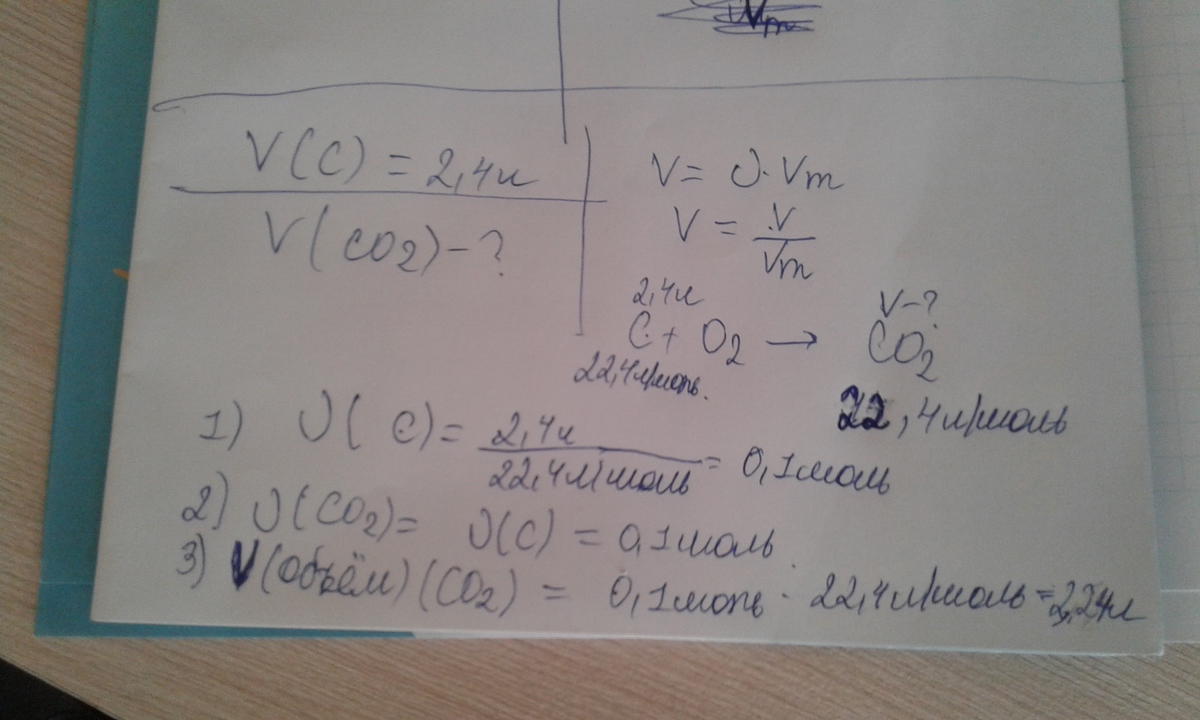 Vm
V(C) = 2,4л
V(CO2) - ?
V = υ · Vm
V = V/Vm
2,4л
V - ?
C + O2 → CO2
22,4л/моль.
22,4л/моль
1) υ(C) = 2,4л/22,4л/моль = 0,1моль
2) υ(CO2) = υ(C) = 0,1моль
3) V(объём)(CO2) = 0,1моль · 22,4л/моль = 2,24л